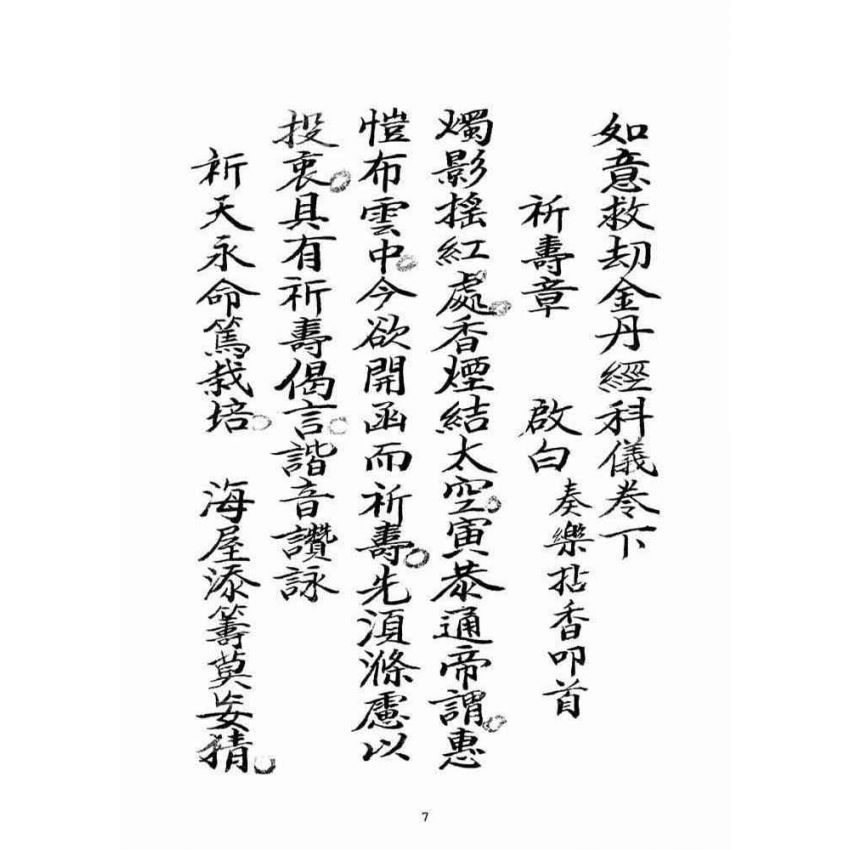 如意救劫金丹經科儀卷下
祈壽章 啟白 奏樂拈香叩首
燭影搖紅處。香煙結太空。寅恭通帝謂。惠
愷布雲中。今欲開函而祈壽。先須滌慮以
投衷。具有祈壽偈言。諧音讚詠
祈天永命篤栽培。 海屋添籌莫妄猜。
7